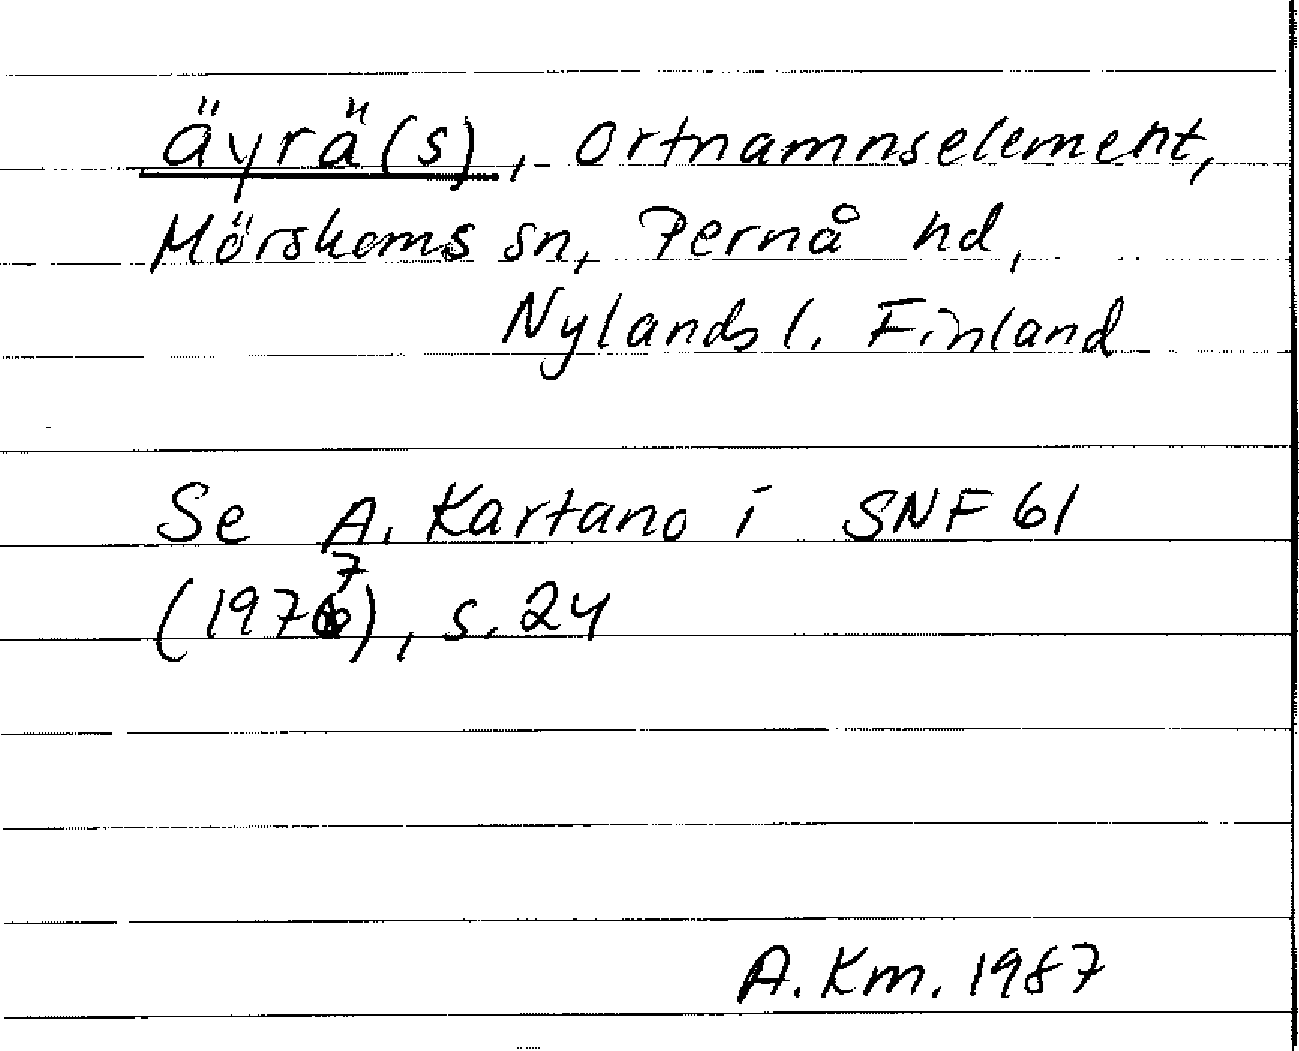 äyrä(s), ortnamnselement,
Mörskoms sn, Pernå hd,
Nylands l. Finland
Se A. Kartano i SNF 61
(1977), s. 24
A. Km. 1987